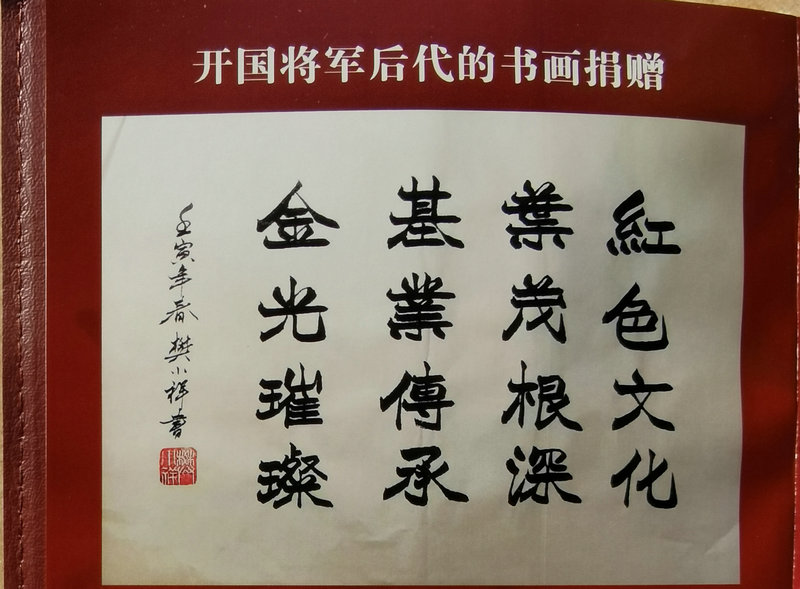 开国将军后代的书画捐赠
紅色文化
葉茂根深
基業傳承
金光璀璨
壬寅年春樊小祥書